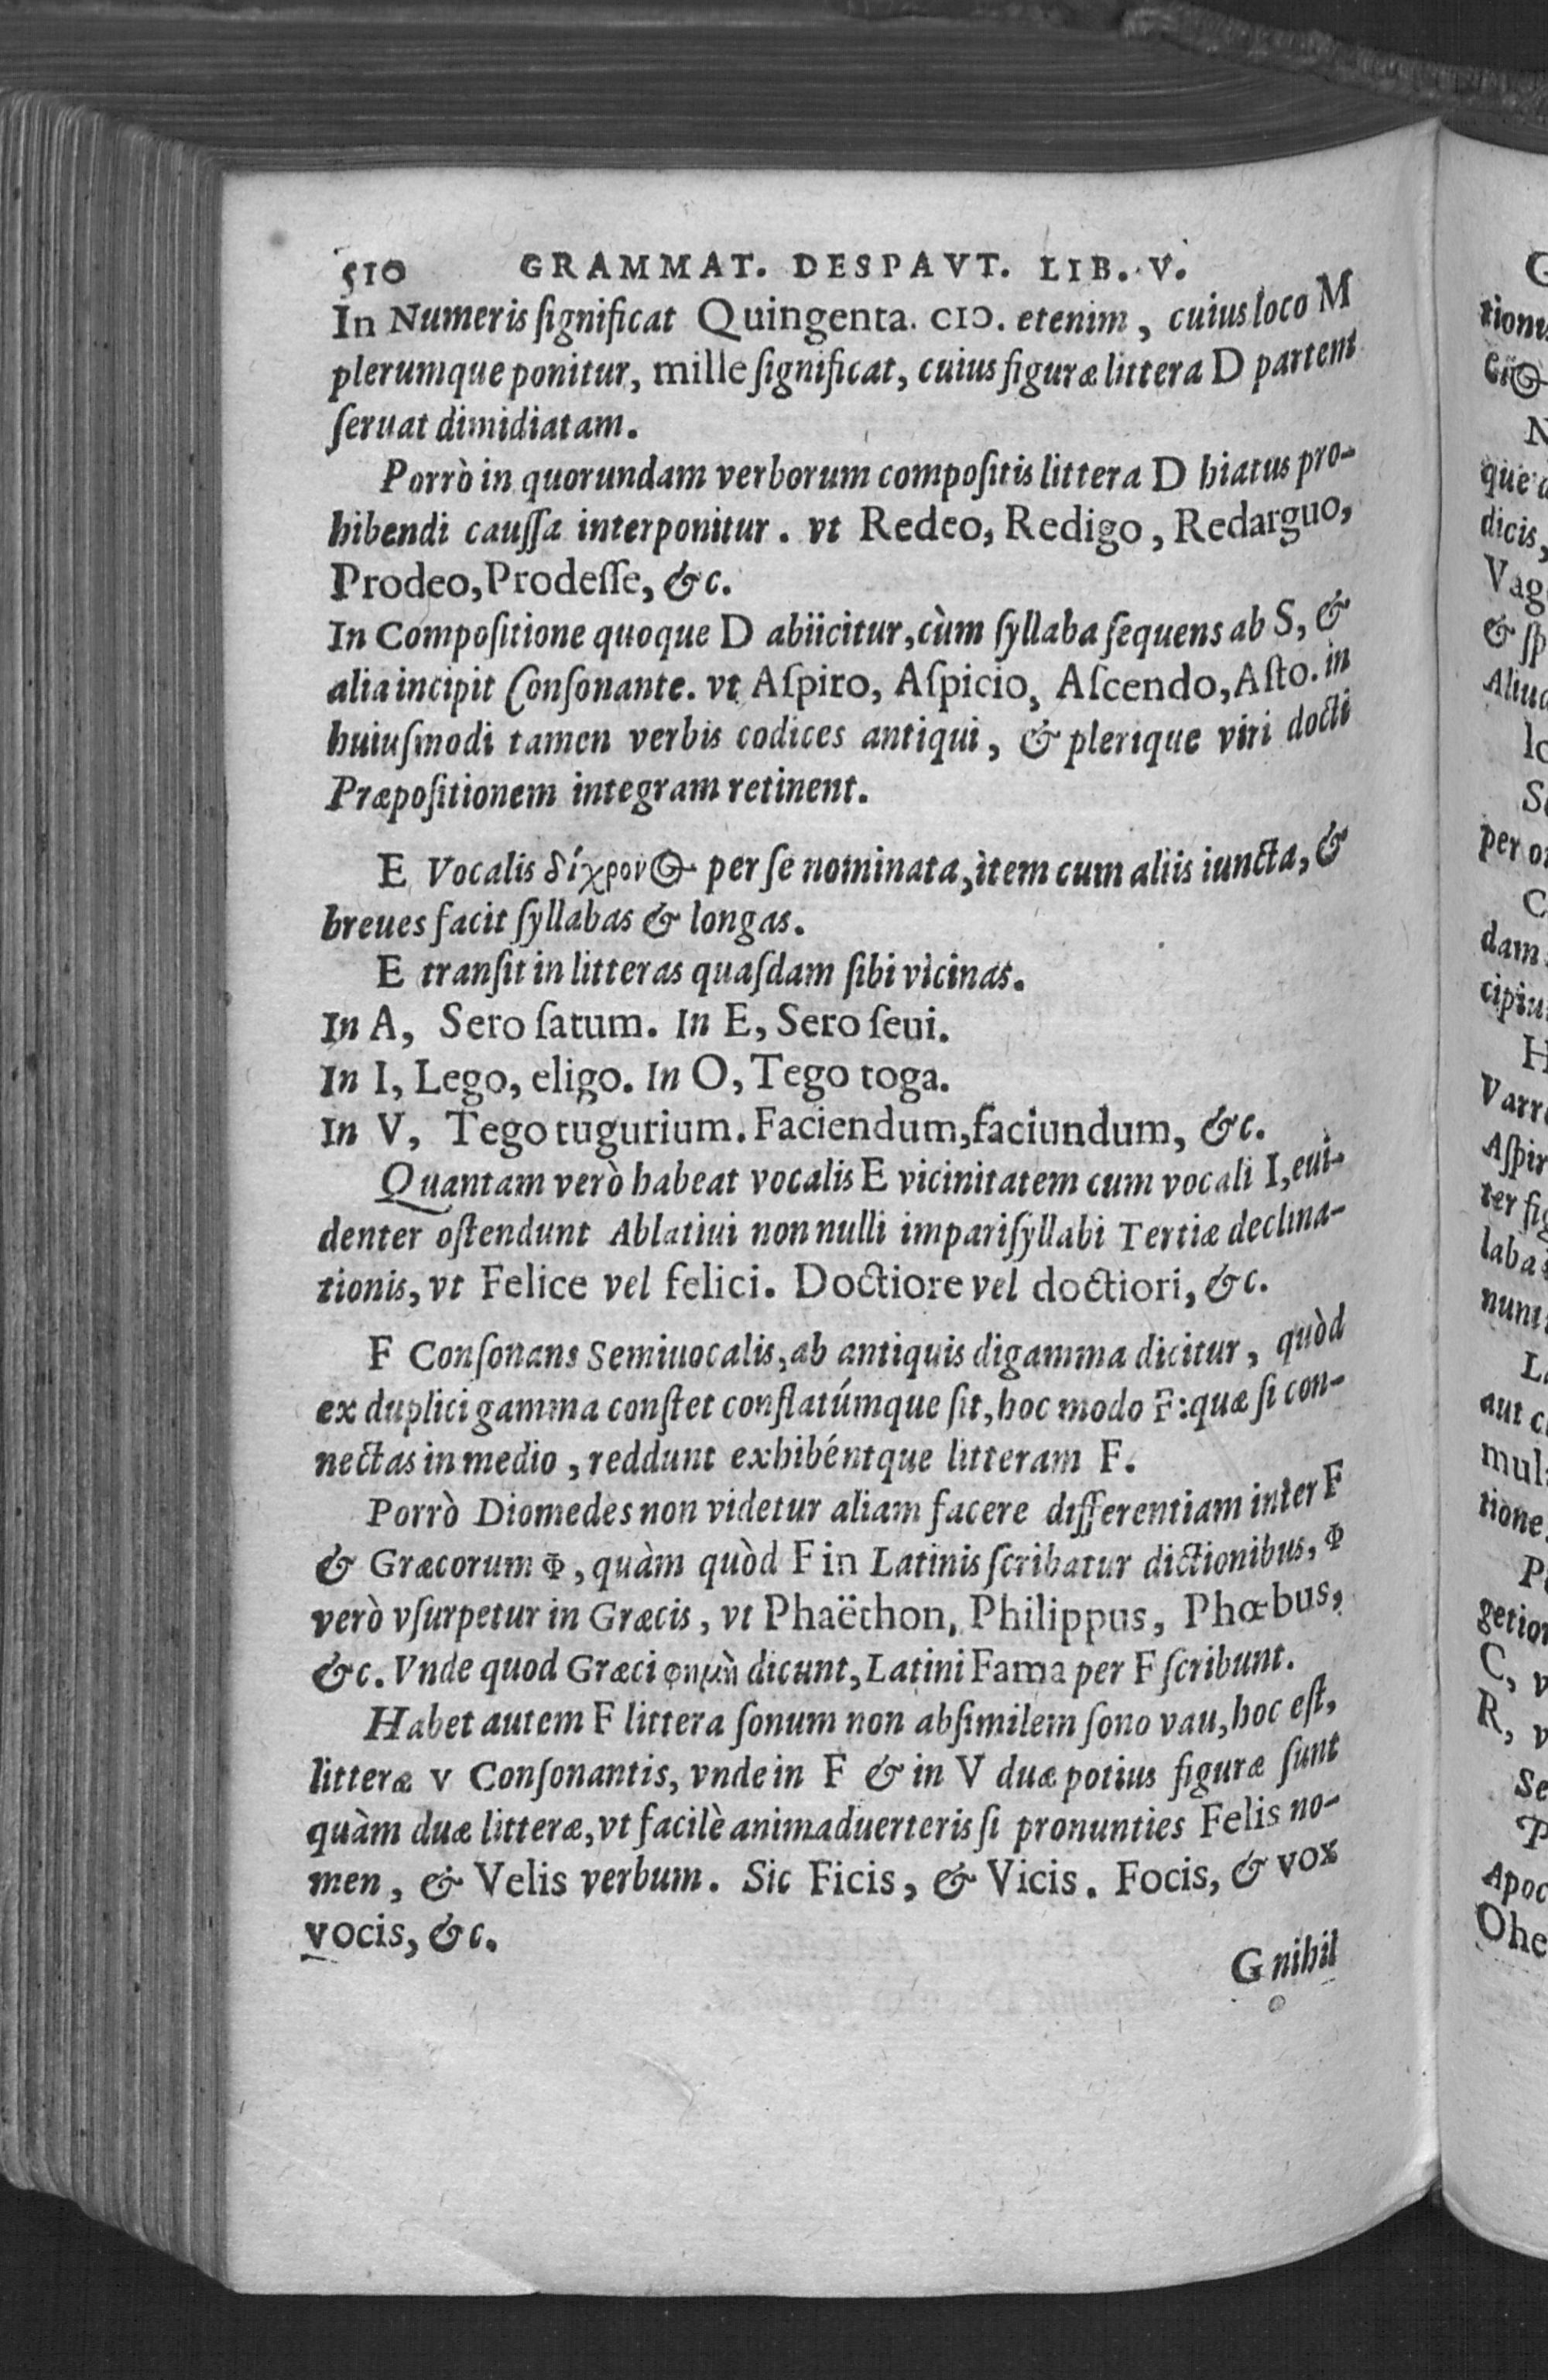 510 GRAMMAT. DESPAVT. LIB. V.
In Numeris ſignificat Quingenta. CIↃ. etenim, cuius loco M
plerumque ponitur, mille ſignificat, cuius figuræ littera D partem
ſeruat dimidiatam.
Porrò in quorundam verborum compoſitis littera D hiatus pro-
hibendi cauſſa interponitur. vt Redeo, Redigo, Redarguo,
Prodeo, Prodeſſe, &c.
In Compoſitione quoque D abiicitur, cùm ſyllaba ſequens ab S, &
alia incipit Conſonante. vt Aſpiro, Aſpicio, Aſcendo, Aſto. in
huiuſmodi tamen verbis codices antiqui, & plerique viri docti
Præpoſitionem integram retinent.
E Vocalis δίχρονος per ſe nominata, item cum aliis iuncta, &
breues facit ſyllabas & longas.
E tranſit in litteras quaſdam ſibi vicinas.
In A, Sero ſatum. In E, Sero ſeui.
In I, Lego, eligo. In O, Tego toga.
In V, Tego tugurium. Faciendum, faciundum, &c.
Quantam verò habeat vocalis E vicinitatem cum vocali I, eui-
denter oſtendunt Ablatiui nonnulli impariſyllabi Tertiæ declina-
tionis, vt Felice vel felici. Doctiore vel doctiori, &c.
F Conſonans Semiuocalis, ab antiquis digamma dicitur, quòd
ex duplici gamma conſtet conflatúmque ſit, hoc modo F: quæ ſi con-
nectas in medio, reddunt exhibéntque litteram F.
Porrò Diomedes non videtur aliam facere differentiam inter F
& Græcorum Φ, quàm quòd F in Latinis ſcribatur dictionibus, Φ
verò vſurpetur in Græcis, vt Phaëthon, Philippus, Phœbus,
&c. Vnde quod Græci φημὶ dicunt, Latini Fama per F ſcribunt.
Habet autem F littera ſonum non abſimilem ſono vau, hoc eſt,
litteræ v Conſonantis, vnde in F & in V duæ potius figuræ ſunt
quàm duæ litteræ, vt facilè animaduerteris ſi pronunties Felis no-
men, & Velis verbum. Sic Ficis, & Vicis. Focis, & vox
vocis, &c.
G nihil